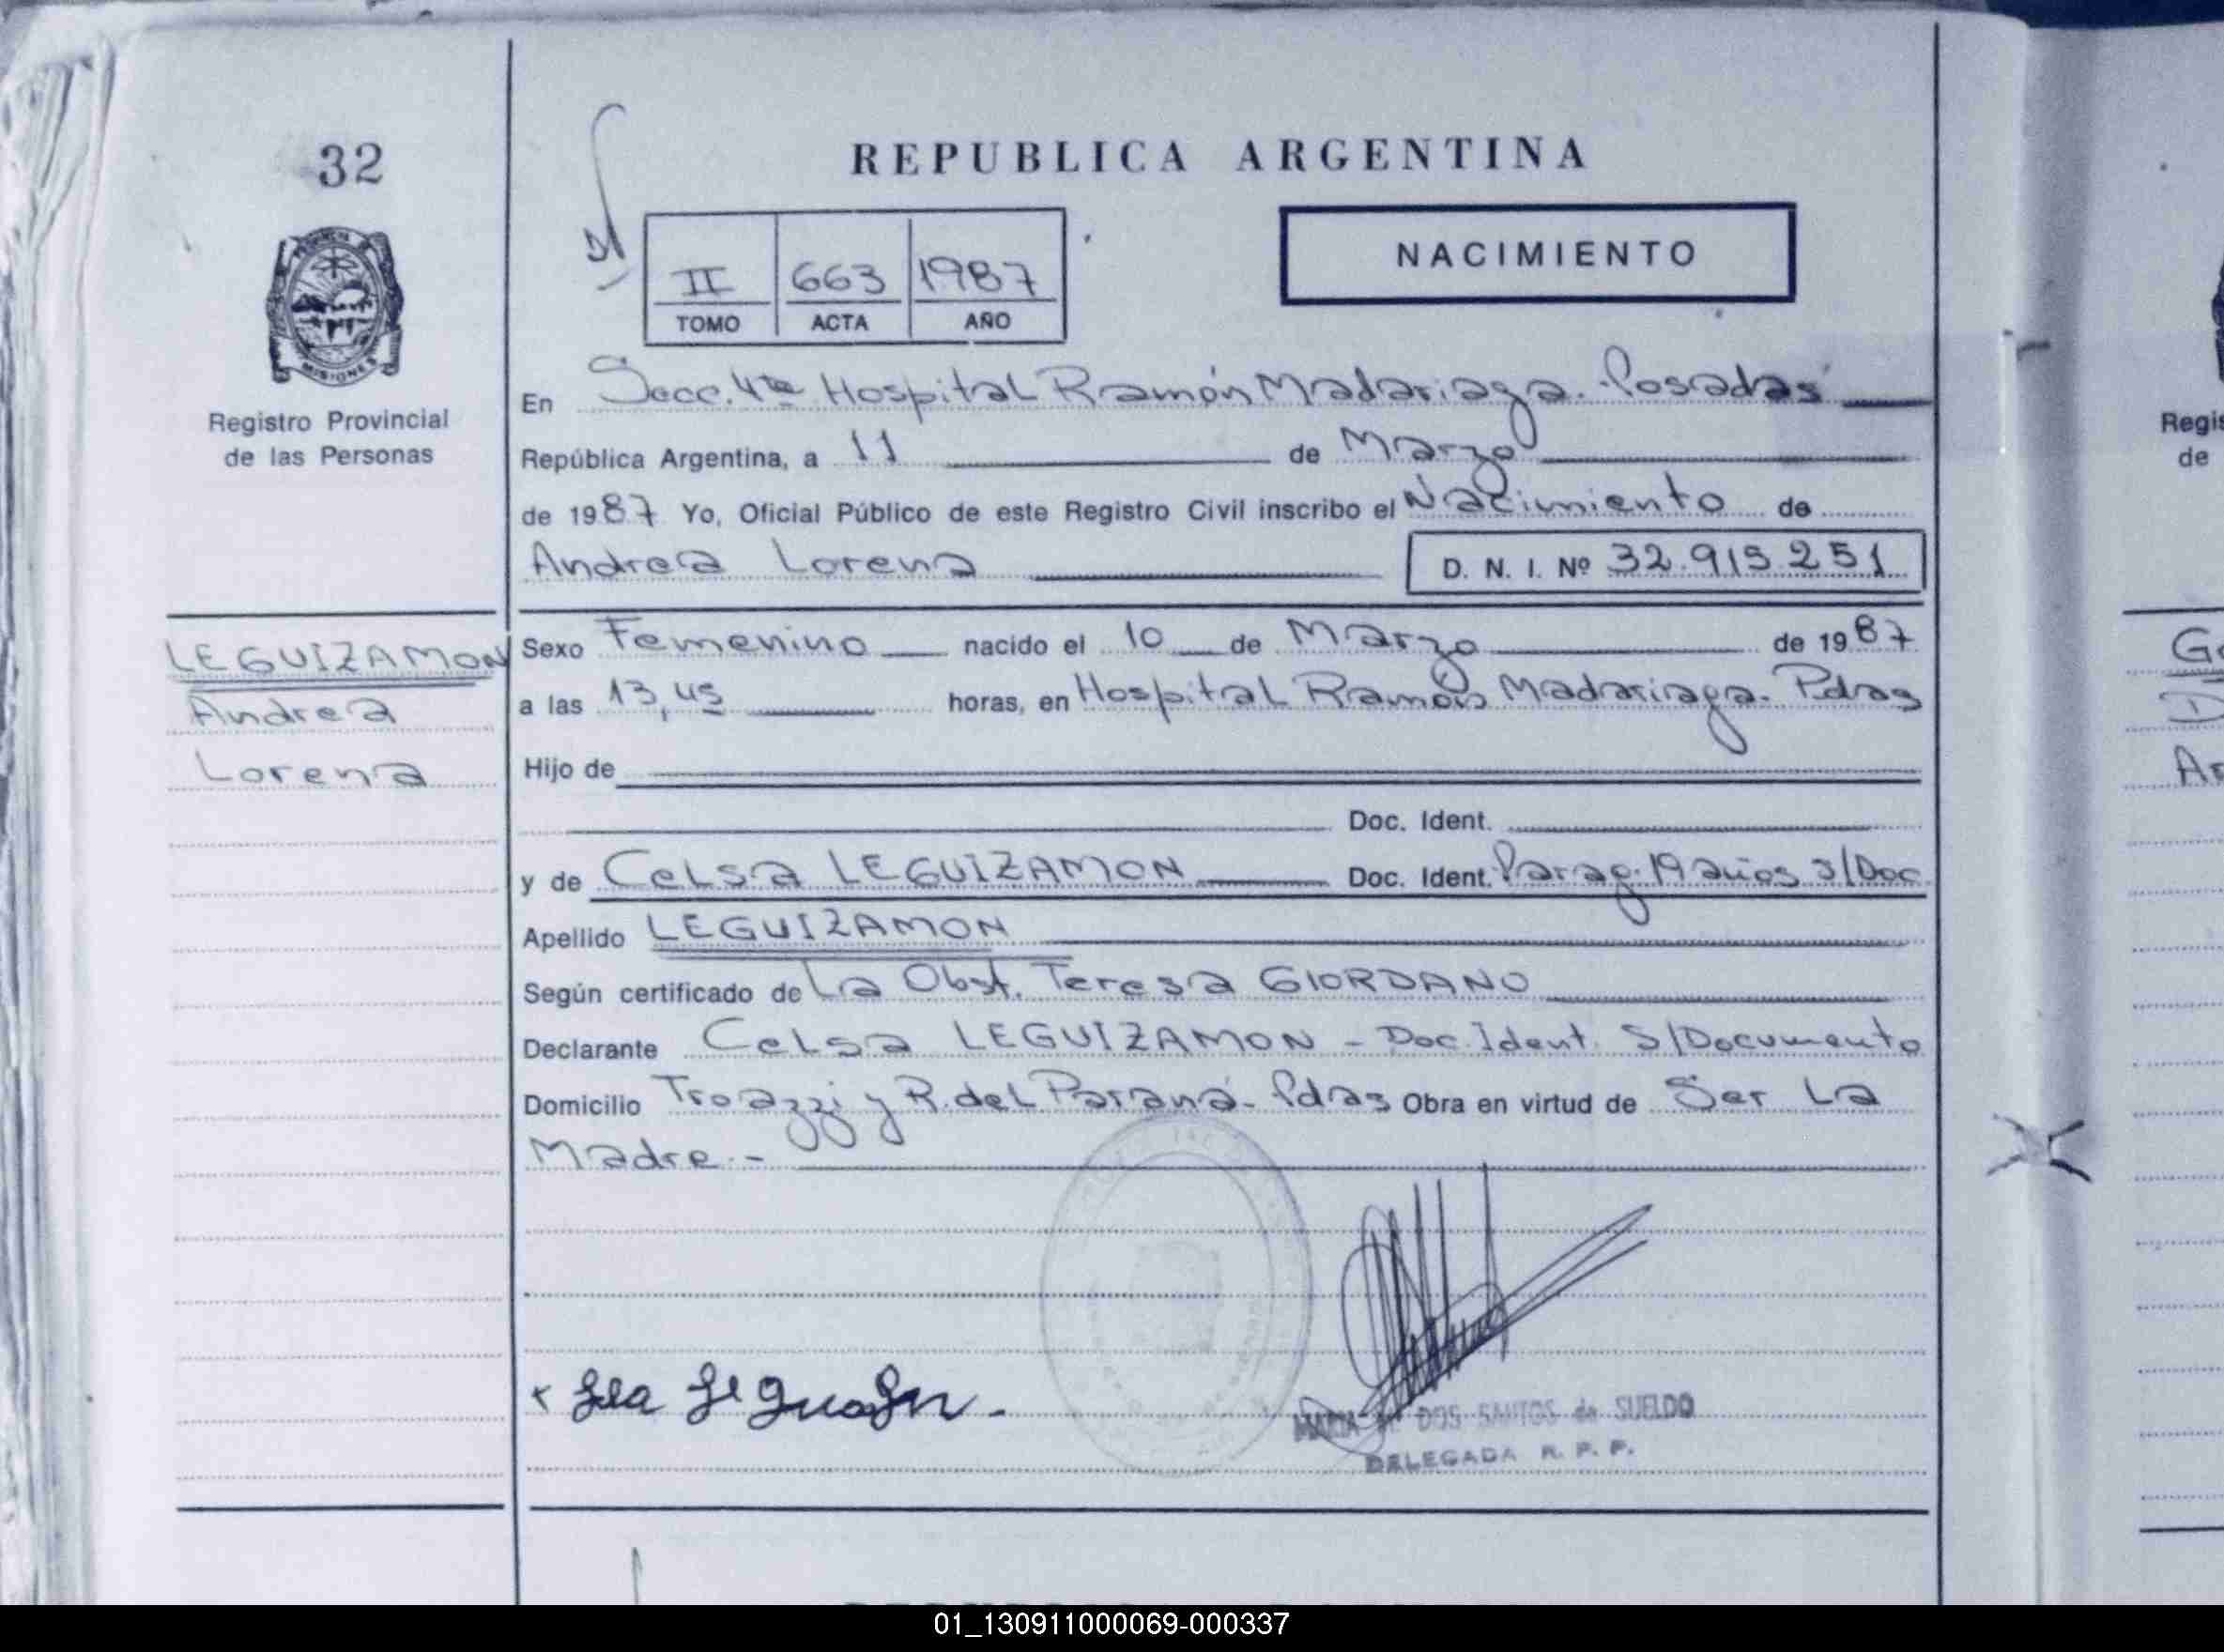 32
REPUBLICA ARGENTINA
NACIMIENTO
II 663 1987
TOMO ACTA AÑO
PROVINCIA DE
MISIONES
Registro Provincial
de las Personas
En Secc. 4ta Hospital Ramón Madariaga. Posadas
República Argentina, a 11 de Marzo
de 1987 Yo, Oficial Público de este Registro Civil inscribo el Nacimiento de
Andrea Lorena D. N. I. Nº 32.915.251
LEGUIZAMON
Andrea
Lorena
Sexo Femenino nacido el 10 de Marzo de 1987
a las 13,45 horas, en Hospital Ramón Madariaga. Pdas
Hijo de
Doc. Ident.
y de Celsa LEGUIZAMON Doc. Ident. Parag. 19 años S/Doc
Apellido LEGUIZAMON
Según certificado de La Obst. Teresa GIORDANO
Declarante Celsa LEGUIZAMON - Doc. Ident. S/Documento
Domicilio Troazzi y R. del Paraná - Pdas Obra en virtud de Ser La
Madre.-
MARIA DOS SANTOS de SUELDO
DELEGADA R. P. P.
Regis
de
Go
D
An
01_130911000069-000337